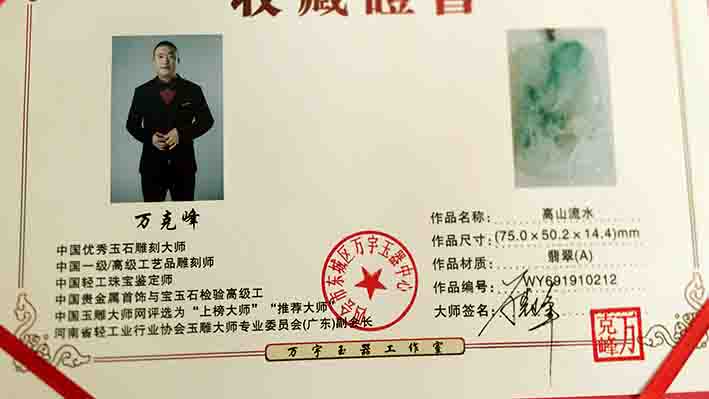 收藏證書
万克峰
中国优秀玉石雕刻大师
中国一级/高级工艺品雕刻师
中国轻工珠宝鉴定师
中国贵金属首饰与宝玉石检验高级工
中国玉雕大师网评选为“上榜大师”“推荐大师”
河南省轻工业行业协会玉雕大师专业委员会(广东)副会长
作品名称： 高山流水
作品尺寸： (75.0×50.2×14.4)mm
作品材质： 翡翠(A)
作品编号： WY691910212
大师签名： 万克峰
市东城区万宇玉器中心
万克峰
万宇玉器工作室